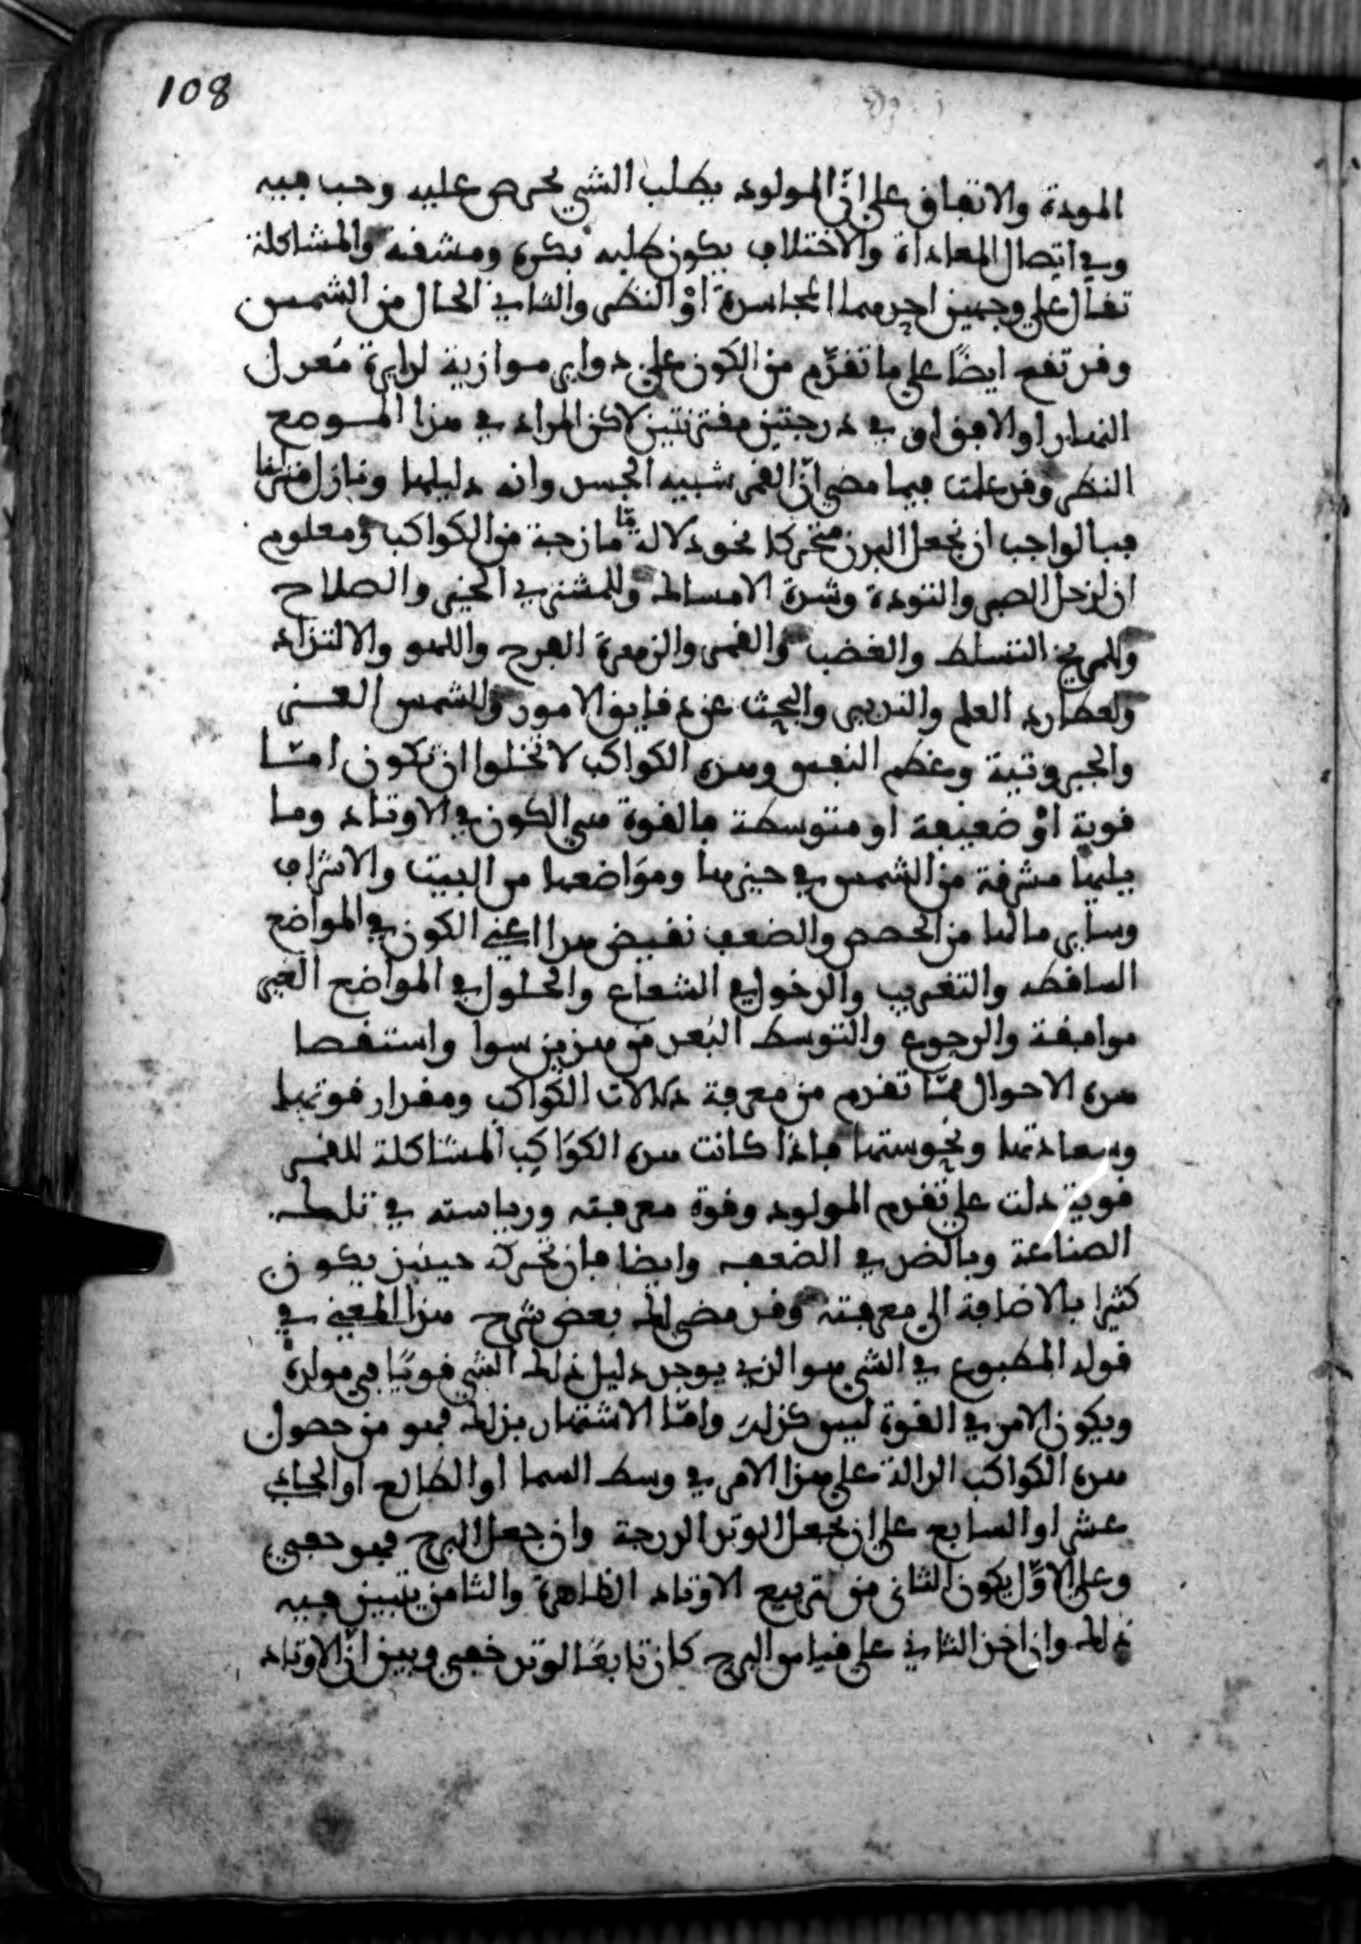 108
المودة والاتفاق على انّ المولود يطلب الشي بحرص عليه وحب فيه
وفي اتصال المعاداة والاختلاف يكون طلبه بكره ومشقه والمشاكلة
تقال على وجهين احدهما المجاسدة اوْ النظر والثاني الحال من الشمس
وقد تقع ايضًا على ما تقدّم من الكون على دواير موازية لدايرة مُعدل
النهار او الافق او في درجتين مقترنتين لاكن المراد في هذا الموضع
النظر وقد علمت فيما مضى انّ القمر شبيه الجسد وانه دليلها ونازل منزلتها
فبالواجب ان يجعل البدن متحركا نحو دلالة ما مازجه من الكواكب ومعلوم
ان لزحل الصبر والتئودة وشدة الامساك وللمشتري الخير والصلاح
وللمريخ التسلط والغضب والقمر والزهرة الفرح واللهو والالتذاد
ولعطارد العلم والتدبير والبحث عن دقايق الامور وللشمس العز
والجبروتية وعظم النفس وهذه الكواكب لا تخلوا ان تكون امّا
قوية اوْ ضعيفة او متوسطة فالقوة هي الكون في الاوتاد وما
يليها مشرقة من الشمس في حيزها ومَواضعها من البيت والاشراف
وساير مالها من الحصص والضعف نقيض هذا اعني الكون في المواضع
الساقطه والتغريب والدخول في الشعاع والحلول في المواضع الغير
موافقة والرجوع والتوسط البُعد من هذين سوا واستقصا
هذه الاحوال ممّا تقدم من معرفة دلالات الكواكب ومقدار قوتها
وسعادتها ونحوستها فاذا كانت هذه الكوَاكِب المشاكلة للقمر
قوية دلت على تقدم المولود وقوة معرفته ورياسته في تلك
الصناعة وبالضد في الضعف وايضا فان تحركه حينئذ يكون
كثيرا بالاضافة الى معرفته وقد مضى لك بعض شرح هذا المعنى في
قوله المطبوع في الشي هو الذي يوجد دليل ذلك الشي قويًا في مولده
ويكون الامر في القوة ليس كذلك وامّا الاشتهار بذلك فهو من حصول
هذه الكواكب الدالة على هذا الامر في وسط السما او الطالع او الحادي
عشر او السابع على ان يجعل الوتد الدرجة وان جعل البرج فهو خفي
وعلى الاوّل يكون الثاني من تربيع الاوتاد الظاهرة والثامن يتبين فيه
ذلك وان اخذ الثاني على قياس البرج كان تابعًا لوتد خفي وبين انّ الاوتاد